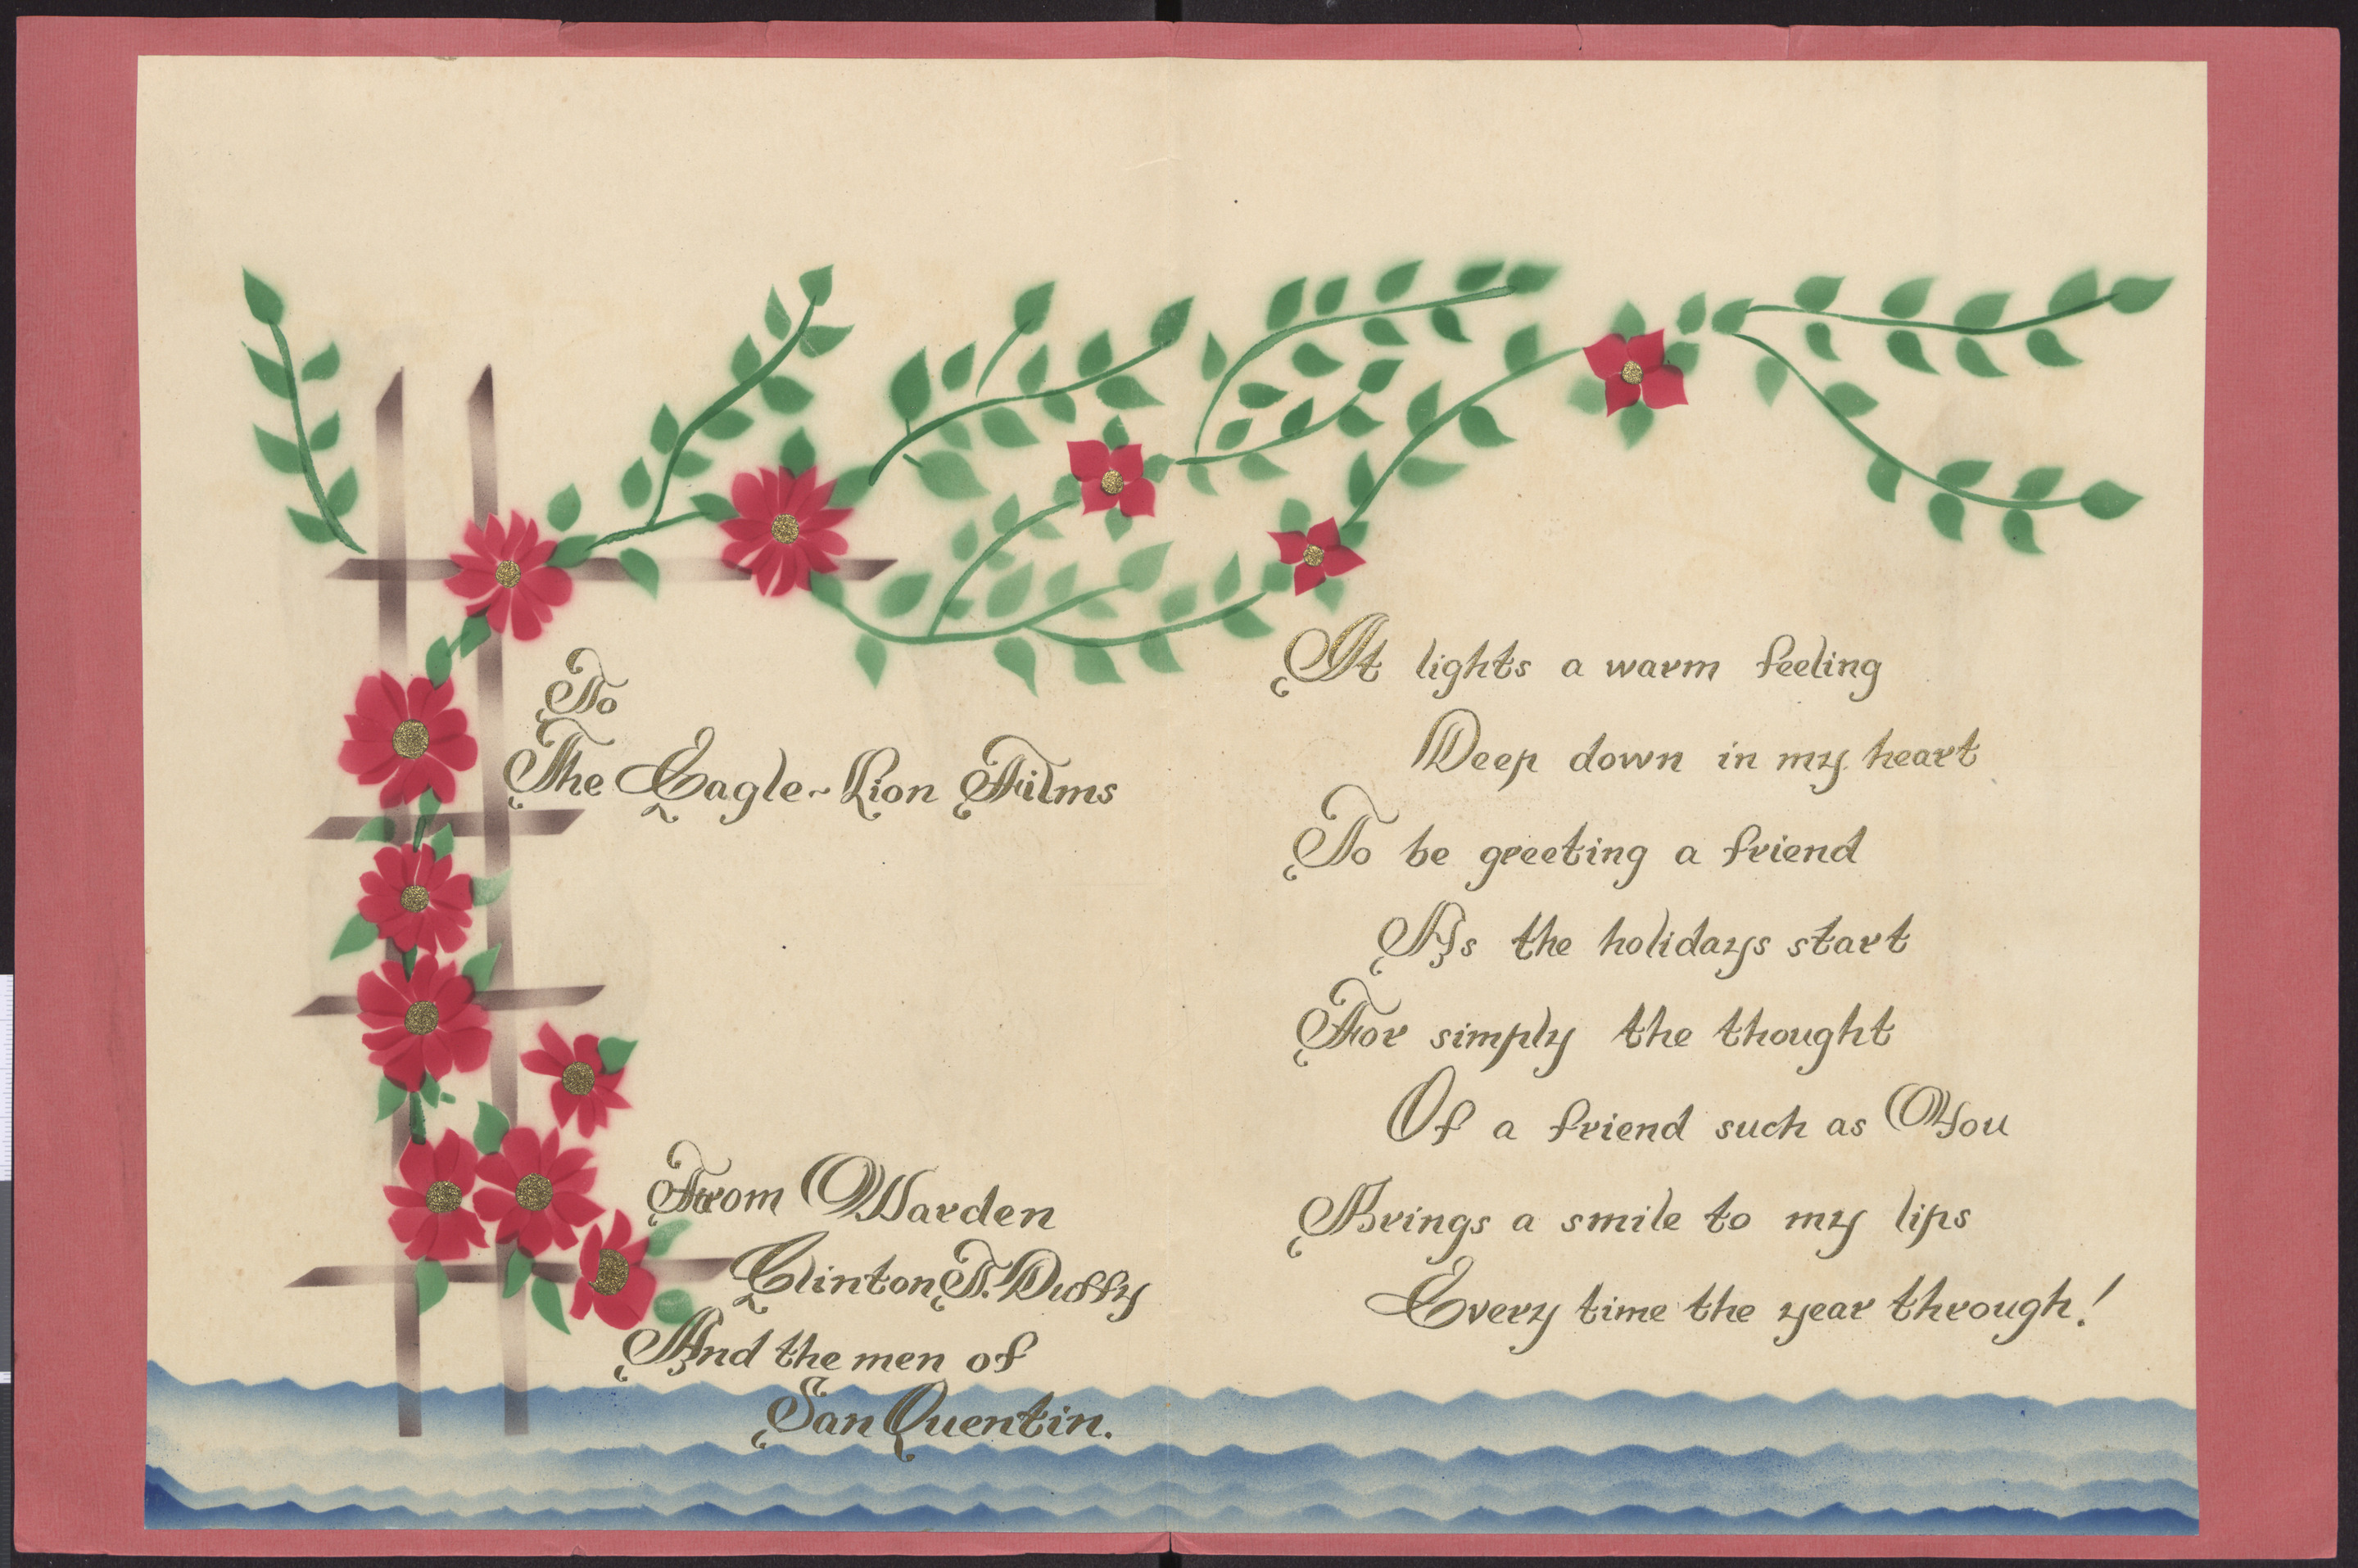 To
The Eagle-Lion Films
From Warden
Clinton T. Duffy
And the men of
San Quentin.
It lights a warm feeling
Deep down in my heart
To be greeting a friend
As the holidays start
For simply the thought
Of a friend such as You
Brings a smile to my lips
Every time the year through!